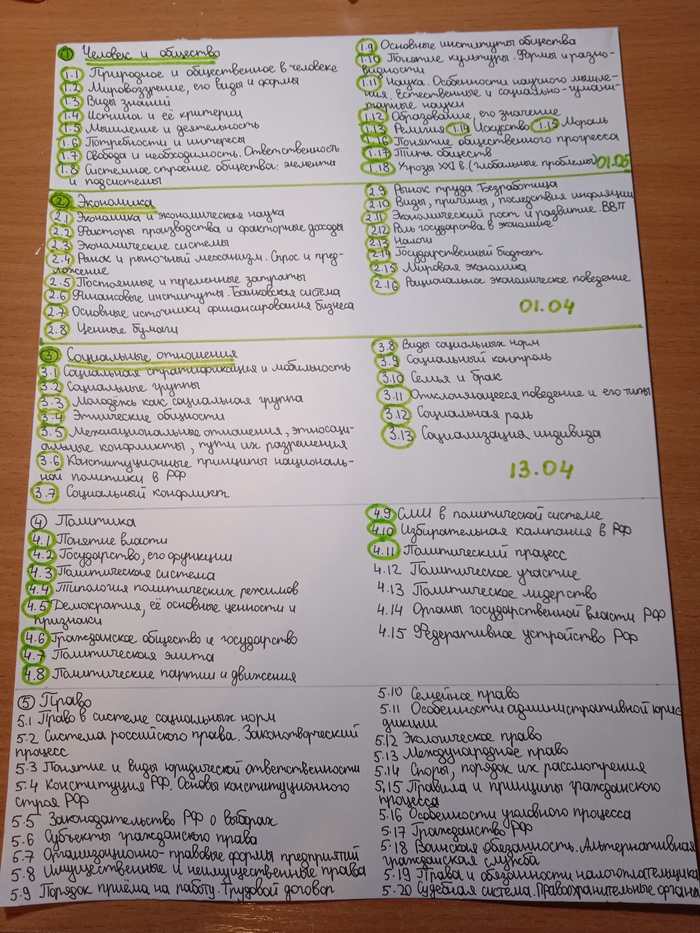 1 Человек и общество
1.1 Природное и общественное в человеке
1.2 Мировоззрение, его виды и формы
1.3 Виды знаний
1.4 Истина и её критерии
1.5 Мышление и деятельность
1.6 Потребности и интересы
1.7 Свобода и необходимость. Ответственность
1.8 Системное строение общества: элементы
и подсистемы
1.9 Основные институты общества
1.10 Понятие культуры. Формы и разно-
видности
1.11 Наука. Особенности научного мышле-
ния. Естественные и социально-гумани-
тарные науки
1.12 Образование, его значение
1.13 Религия 1.14 Искусство 1.15 Мораль
1.16 Понятие общественного прогресса
1.17 Типы обществ
1.18 Угрозы XXI в. (глобальные проблемы) 01.05
2 Экономика
2.1 Экономика и экономическая наука
2.2 Факторы производства и факторные доходы
2.3 Экономические системы
2.4 Рынок и рыночный механизм. Спрос и пред-
ложение
2.5 Постоянные и переменные затраты
2.6 Финансовые институты. Банковская система
2.7 Основные источники финансирования бизнеса
2.8 Ценные бумаги
2.9 Рынок труда. Безработица
2.10 Виды, причины, последствия инфляции
2.11 Экономический рост и развитие. ВВП
2.12 Роль государства в экономике
2.13 Налоги
2.14 Государственный бюджет
2.15 Мировая экономика
2.16 Рациональное экономическое поведение
01.04
3 Социальные отношения
3.1 Социальная стратификация и мобильность
3.2 Социальные группы
3.3 Молодёжь как социальная группа
3.4 Этнические общности
3.5 Межнациональные отношения, этносоци-
альные конфликты, пути их разрешения
3.6 Конституционные принципы националь-
ной политики в РФ
3.7 Социальный конфликт
3.8 Виды социальных норм
3.9 Социальный контроль
3.10 Семья и брак
3.11 Отклоняющееся поведение и его типы
3.12 Социальная роль
3.13 Социализация индивида
13.04
4 Политика
4.1 Понятие власти
4.2 Государство, его функции
4.3 Политическая система
4.4 Типология политических режимов
4.5 Демократия, её основные ценности и
признаки
4.6 Гражданское общество и государство
4.7 Политическая элита
4.8 Политические партии и движения
4.9 СМИ в политической системе
4.10 Избирательная кампания в РФ
4.11 Политический процесс
4.12 Политическое участие
4.13 Политическое лидерство
4.14 Органы государственной власти РФ
4.15 Федеративное устройство РФ
5 Право
5.1 Право в системе социальных норм
5.2 Система российского права. Законотворческий
процесс
5.3 Понятие и виды юридической ответственности
5.4 Конституция РФ. Основы конституционного
строя РФ
5.5 Законодательство РФ о выборах
5.6 Субъекты гражданского права
5.7 Организационно-правовые формы предприятий
5.8 Имущественные и неимущественные права
5.9 Порядок приёма на работу. Трудовой договор
5.10 Семейное право
5.11 Особенности административной юрис-
дикции
5.12 Экологическое право
5.13 Международное право
5.14 Споры, порядок их рассмотрения
5.15 Правила и принципы гражданского
процесса
5.16 Особенности уголовного процесса
5.17 Гражданство РФ
5.18 Воинская обязанность. Альтернативная
гражданская служба
5.19 Права и обязанности налогоплательщика
5.20 Судебная система. Правоохранительные органы